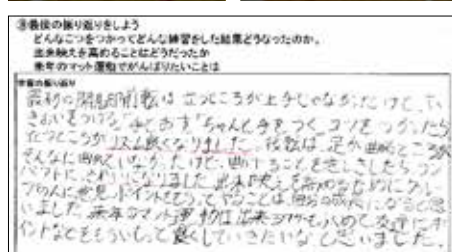 ③最後の振り返りをしよう
どんなこつをつかってどんな練習をした結果どうなったのか。
出来映えを高めることはどうだったか
来年のマット運動でがんばりたいことは
学習の振り返り
最初の開脚前転は立つところが上手じゃなかったけど、い
きおいをつける、手でおす、ちゃんと手をつくコツをつかったら
立つところがスム良くなりました。後転は、足が曲るところが
そんなに曲っていなかったけど、曲げることを意しきしたらコン
パクトに、きれいになりました。出来映えを高めるためにグルー
プの人に意見、ポイントをもらってやることは自分の成長になると思
いました。来年のマット運動は出来
イントなどをもらいもっと良くしていきたいなと思いました。